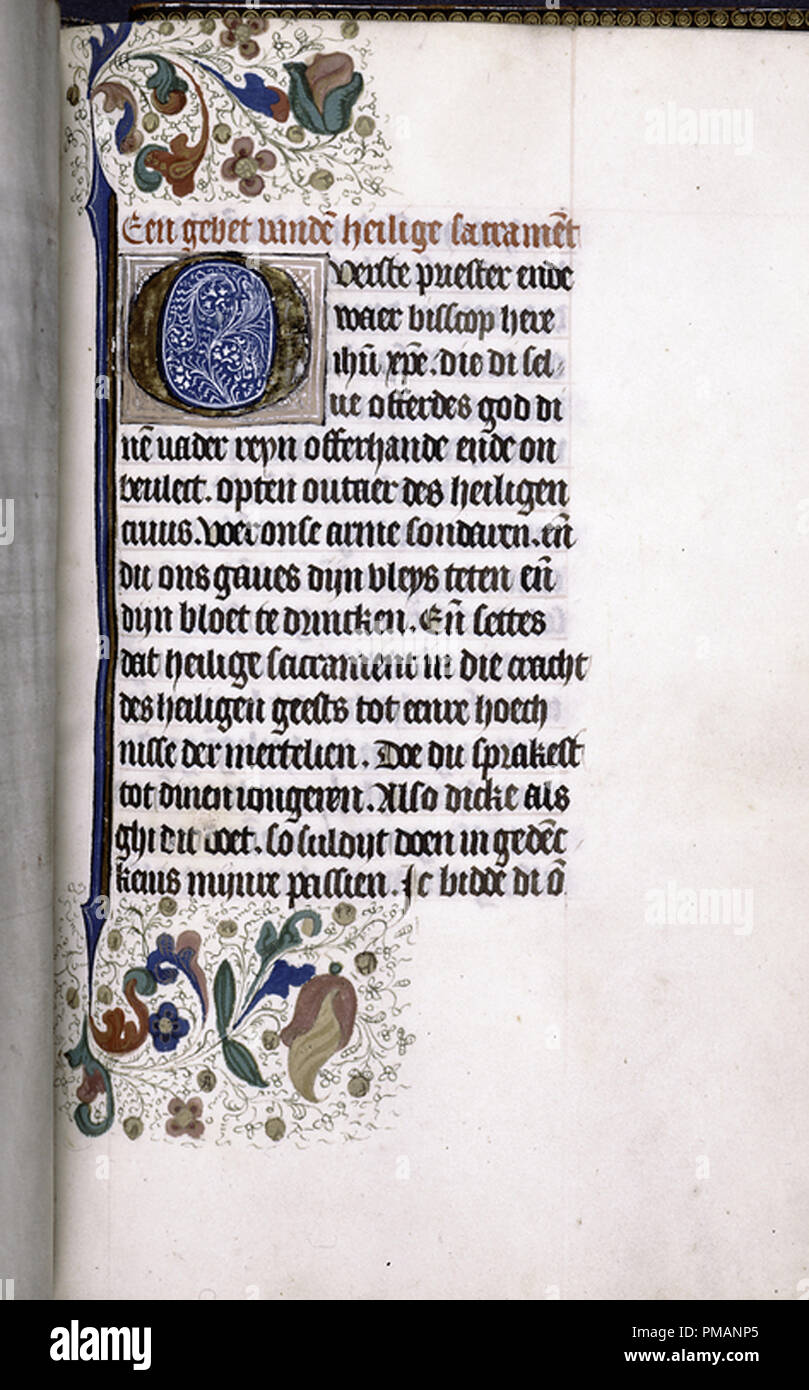 Een gebet vandē heilige sacramēt
Overste priester ende
waer bisscop here
ihū xpē. die di sel-
ue offerdes god di
nē uader reyn offerhande ende on
beulect. opten outaer des heiligen
cruus. Voer onse arme sondaren. eñ
du ons gaues dijn vleys teten eñ
dijn bloet te drincken. Eñ settes
dat heilige sacrament in die cracht
des heiligen geests tot eenre hoech
nisse der mertelien. Doe du sprakest
tot dinen iongeren. Also dicke als
ghi dit doet. so suldijt doen in gedēc
kenis mijnre passien. Ic bidde di ō
alamy
alamy
alamy
Image ID: PMANP5
www.alamy.com